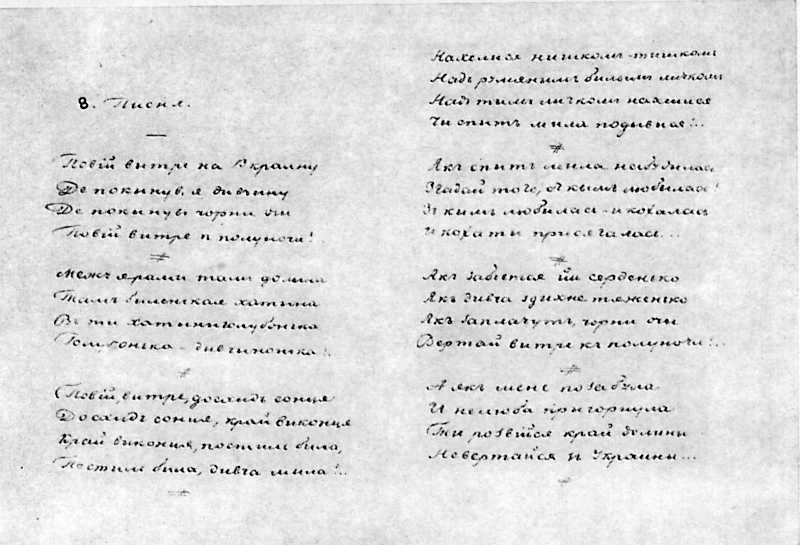 8. Писня.
Повій витре на Вкраину
Де покинув, я дивчину
Де покинувъ чорни очи
Повій витре п полуночи!
Межъ ярами тамъ долина
Тамъ биленькая хатына
Въ ти хатыни голубонька
Голубонька - дивчинонька!..
Повій, витре, досхидъ сонця
Досхидъ сонця, край виконця
Край виконця, постиль била,
Постиль била, дивча мила!..
Нахелися нишкомъ-тишкомъ
Надъ румянимъ билымъ личкомъ
Надъ тимъ личкомъ нахелися
Чи спитъ мила подывися!..
Якъ спитъ мила не збудилась
Згадай того, зъ кымъ любилась!
Зъ кымъ любилась и кохалась
И кохаты присягалась...
Якъ забьется ій серденько
Якъ дивча здихне тяженько
Якъ заплачутъ, чорни очи
Вертай витре къ полуночи!..
А якъ мене позабула
И нелюба пригорнула
Ти розвійся край долины
Невертайся зъ Украины...